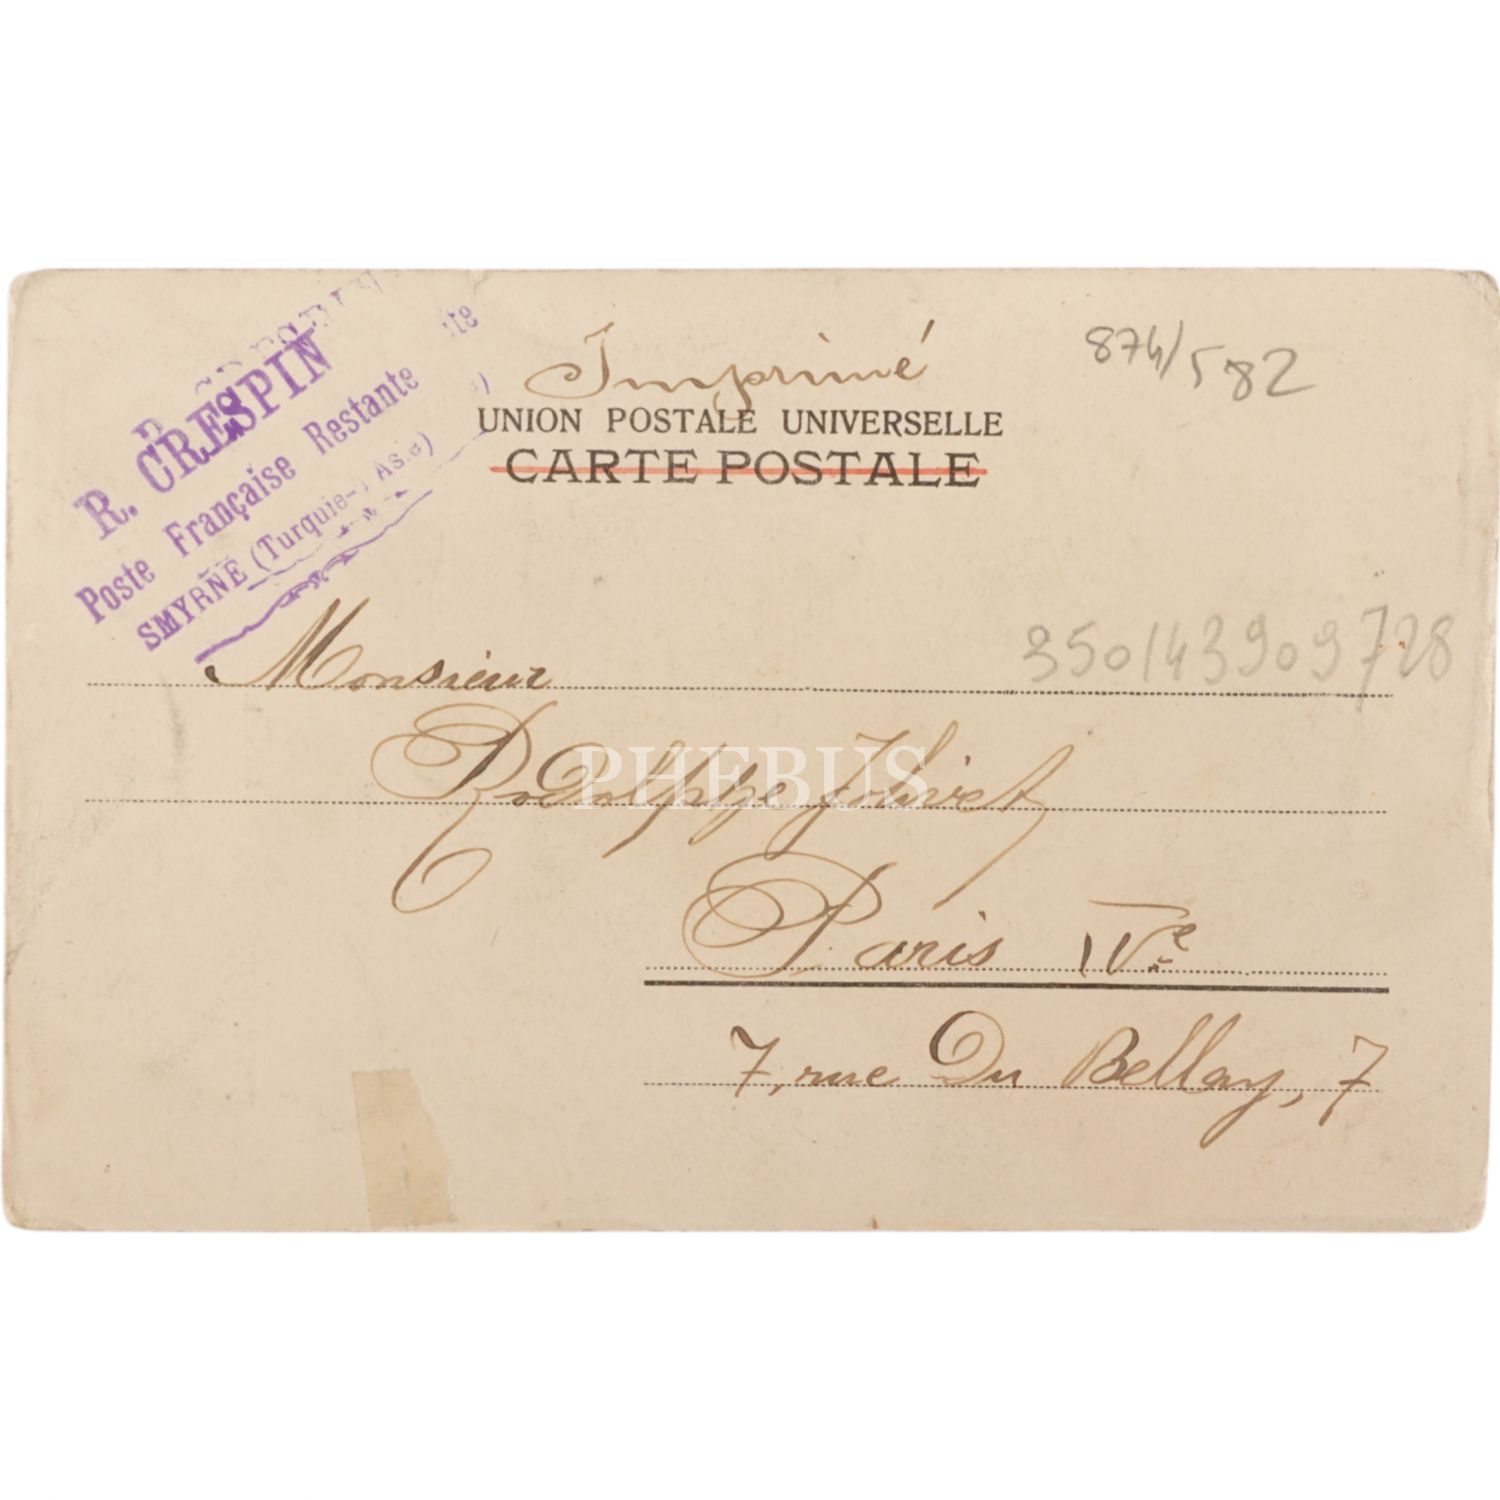 R. CRESPIN
Poste Française Restante
SMYRNE (Turquie-d'Asie)
Imprimé
UNION POSTALE UNIVERSELLE
CARTE POSTALE
874/582
350143909728
Monsieur
Rodolphe Jolivet
PHEBUS
Paris IVe
7, rue Du Bellay, 7